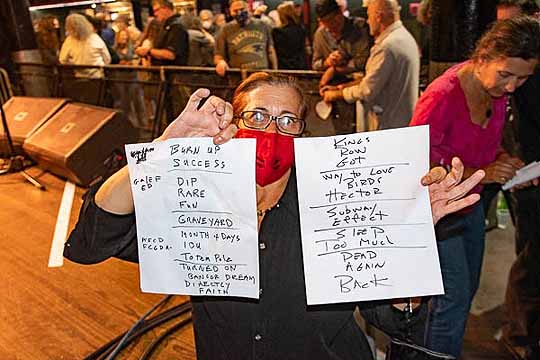 BURN UP
SUCCESS
DIP
RARE
FUN
GRAVEYARD
MONTH 4 DAYS
IOU
TOTEM POLE
TURNED ON
BANGOR DREAM
DIRECTLY
FAITH
KING'S
ROW
GOT
WAY TO LOVE
BIRDS
HECTOR
SUBWAY
EFFECT
SLEEP
TOO MUCH
DEAD
AGAIN
BACK
PATRIOTS